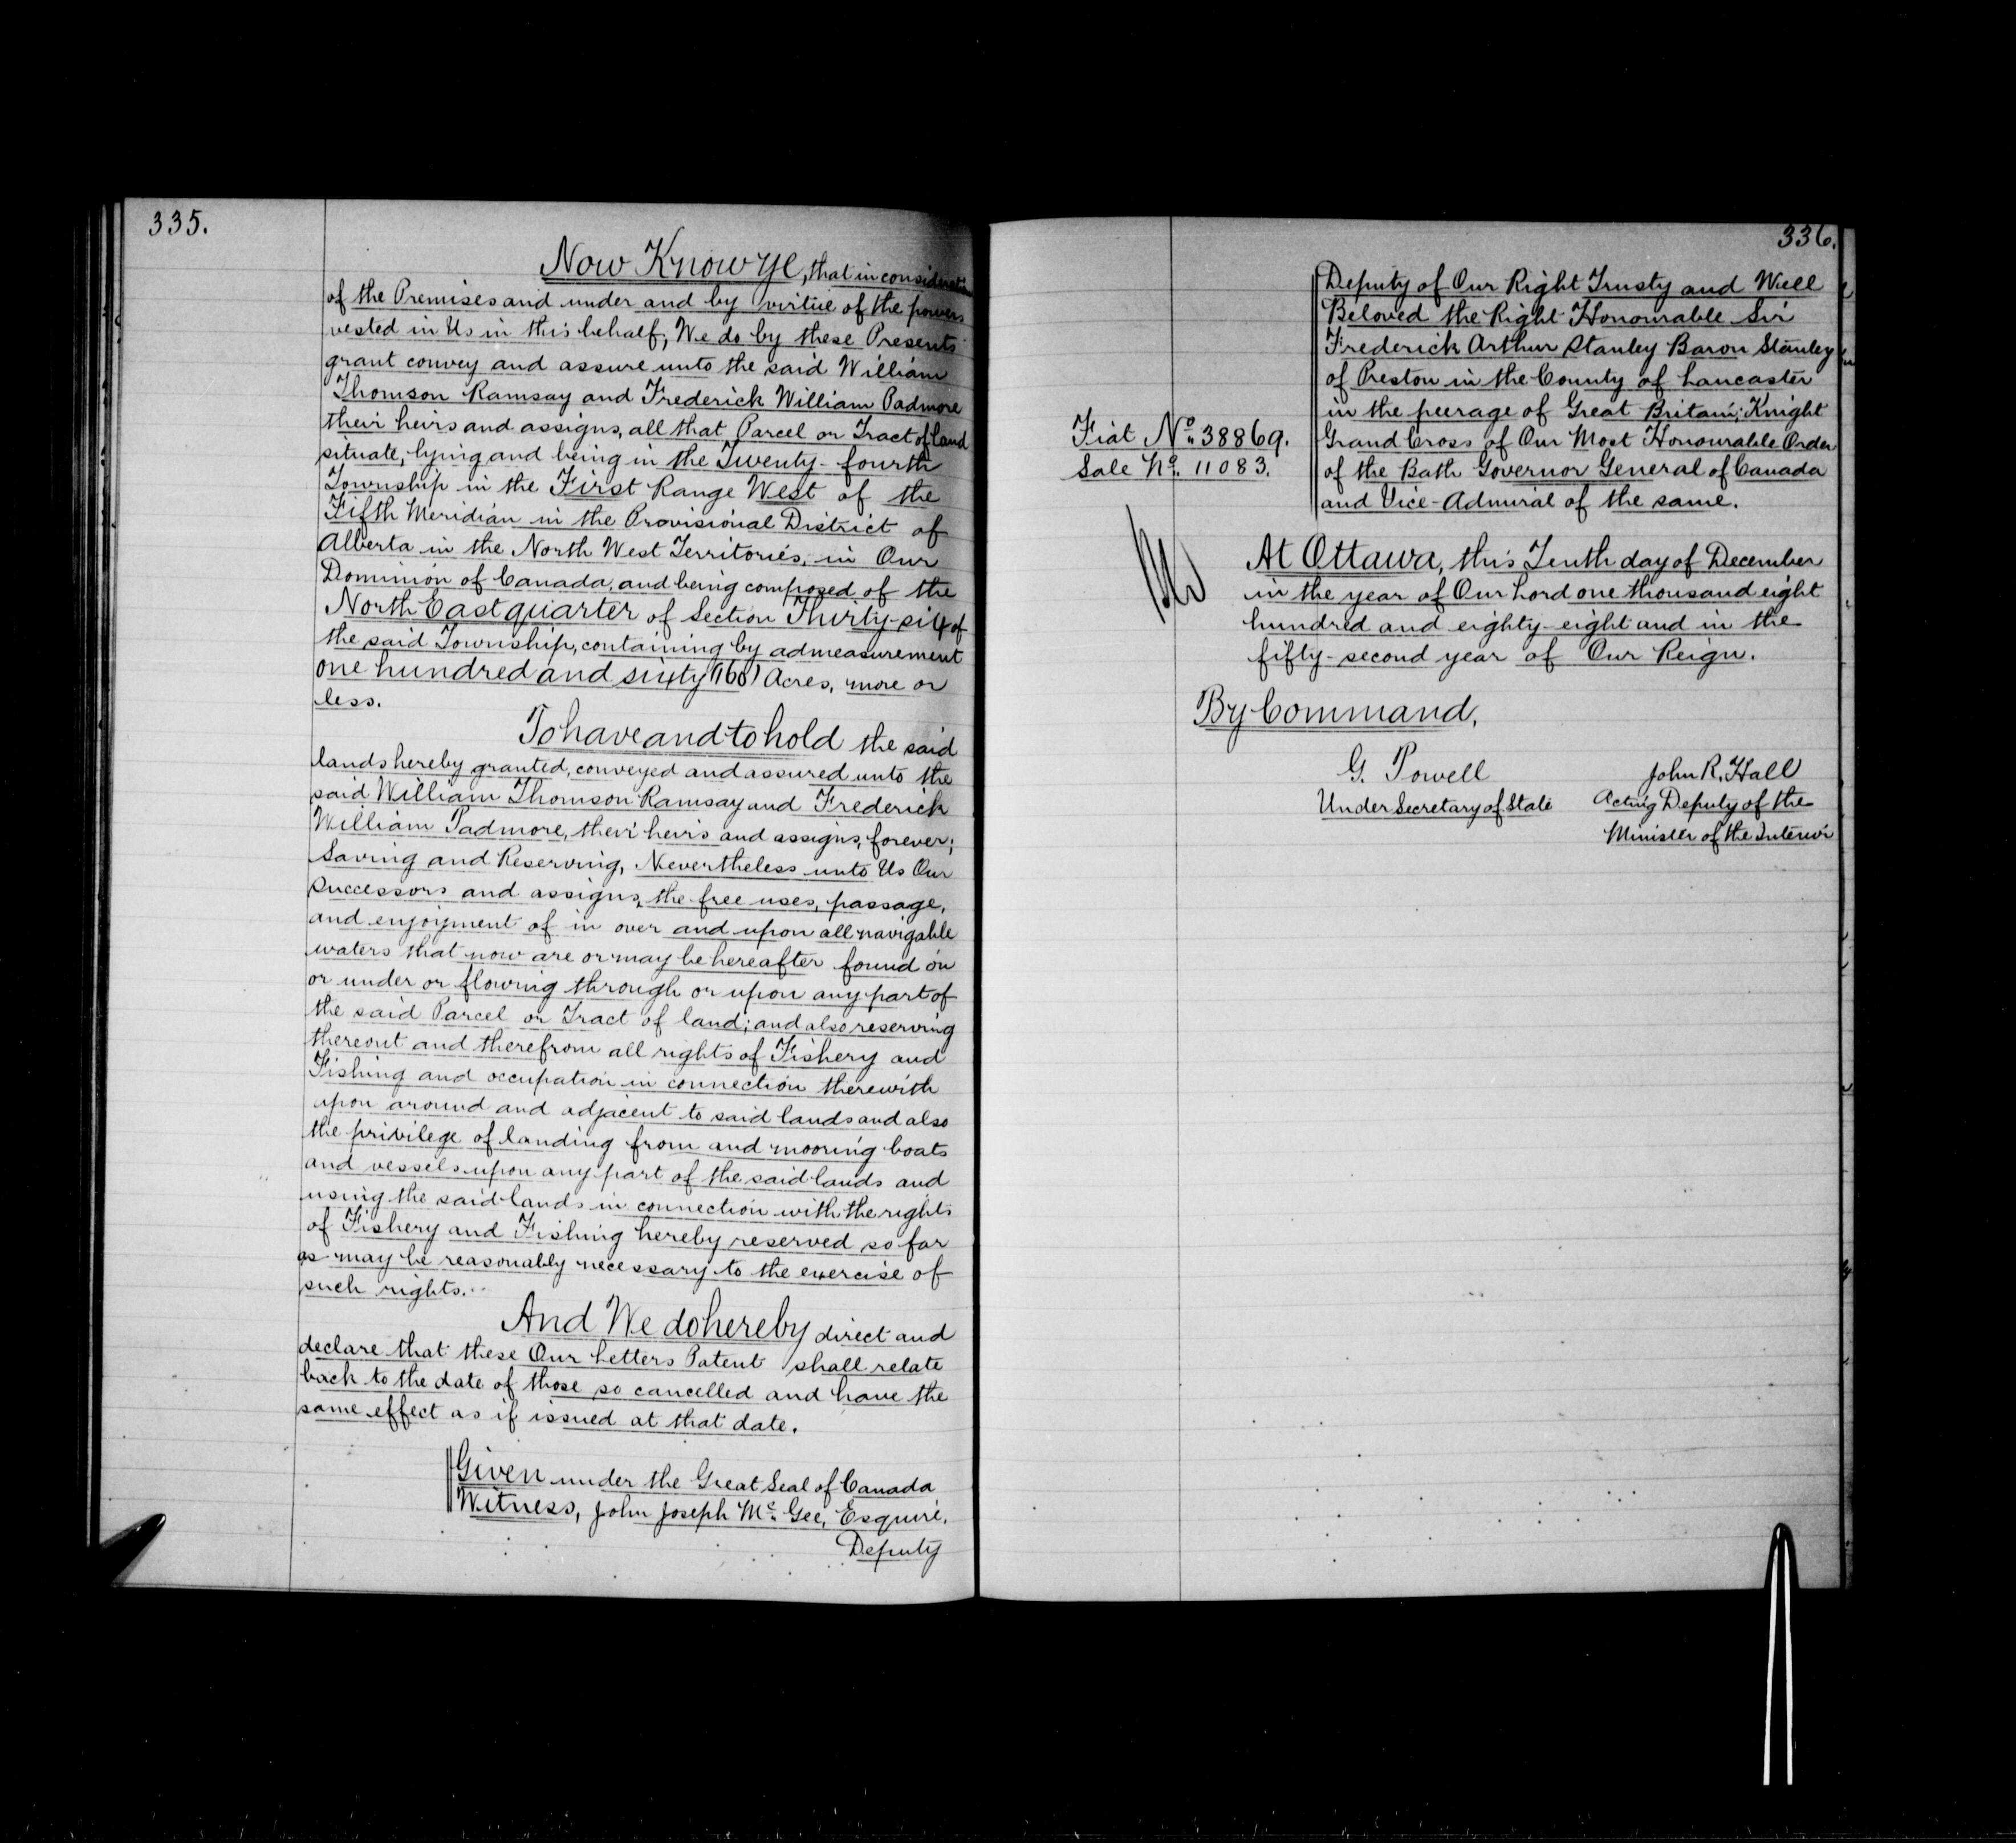 335.
Now Know Ye, that in consideration
of the Premises and under and by virtue of the powers
vested in Us in this behalf, We do by these Presents
grant convey and assure unto the said William
Thomson Ramsay and Frederick William Padmore
their heirs and assigns, all that Parcel or Tract of land
situate, lying and being in the Twenty-fourth
Township in the First Range West of the
Fifth Meridian in the Provisional District of
Alberta in the North West Territories, in Our
Dominion of Canada, and being composed of the
North East quarter of Section Thirty-six of
the said Township, containing by admeasurement
one hundred and sixty (160) Acres, more or
less.
To have and to hold the said
lands hereby granted, conveyed and assured unto the
said William Thomson Ramsay and Frederick
William Padmore, their heirs and assigns, forever;
Saving and Reserving, Nevertheless unto Us Our
Successors and assigns, the free uses, passage,
and enjoyment of in over and upon all navigable
waters that now are or may be hereafter found on
or under or flowing through or upon any part of
the said Parcel or Tract of land; and also reserving
thereout and therefrom all rights of Fishery and
Fishing and occupation in connection therewith
upon around and adjacent to said lands and also
the privilege of landing from and mooring boats
and vessels upon any part of the said lands and
using the said lands in connection with the rights
of Fishery and Fishing hereby reserved so far
as may be reasonably necessary to the exercise of
such rights.
And We do hereby direct and
declare that these Our Letters Patent shall relate
back to the date of those so cancelled and have the
same effect as if issued at that date.
Given under the Great Seal of Canada
Witness, John Joseph Mc Gee, Esquire,
Deputy
336.
Deputy of Our Right Trusty and Well
Beloved the Right Honourable Sir
Frederick Arthur Stanley Baron Stanley
of Preston in the County of Lancaster
in the peerage of Great Britain; Knight
Grand Cross of Our Most Honourable Order
of the Bath Governor General of Canada
and Vice-Admiral of the same.
Fiat No. 38869.
Sale No. 11083.
At Ottawa, this Tenth day of December
in the year of Our Lord one thousand eight
hundred and eighty-eight and in the
fifty-second year of Our Reign.
By Command,
G. Powell
Under Secretary of State
John R. Hall
Acting Deputy of the
Minister of the Interior